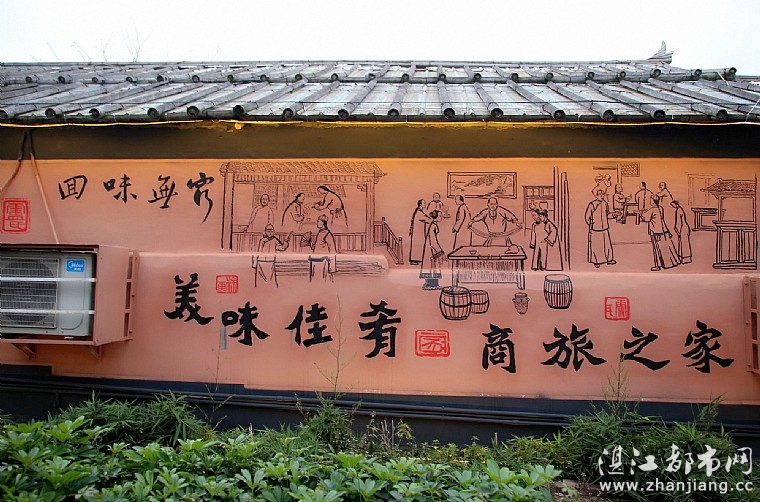 回味無窮
美味佳肴
商旅之家
Midea
湛江都市网
www.zhanjiang.cc